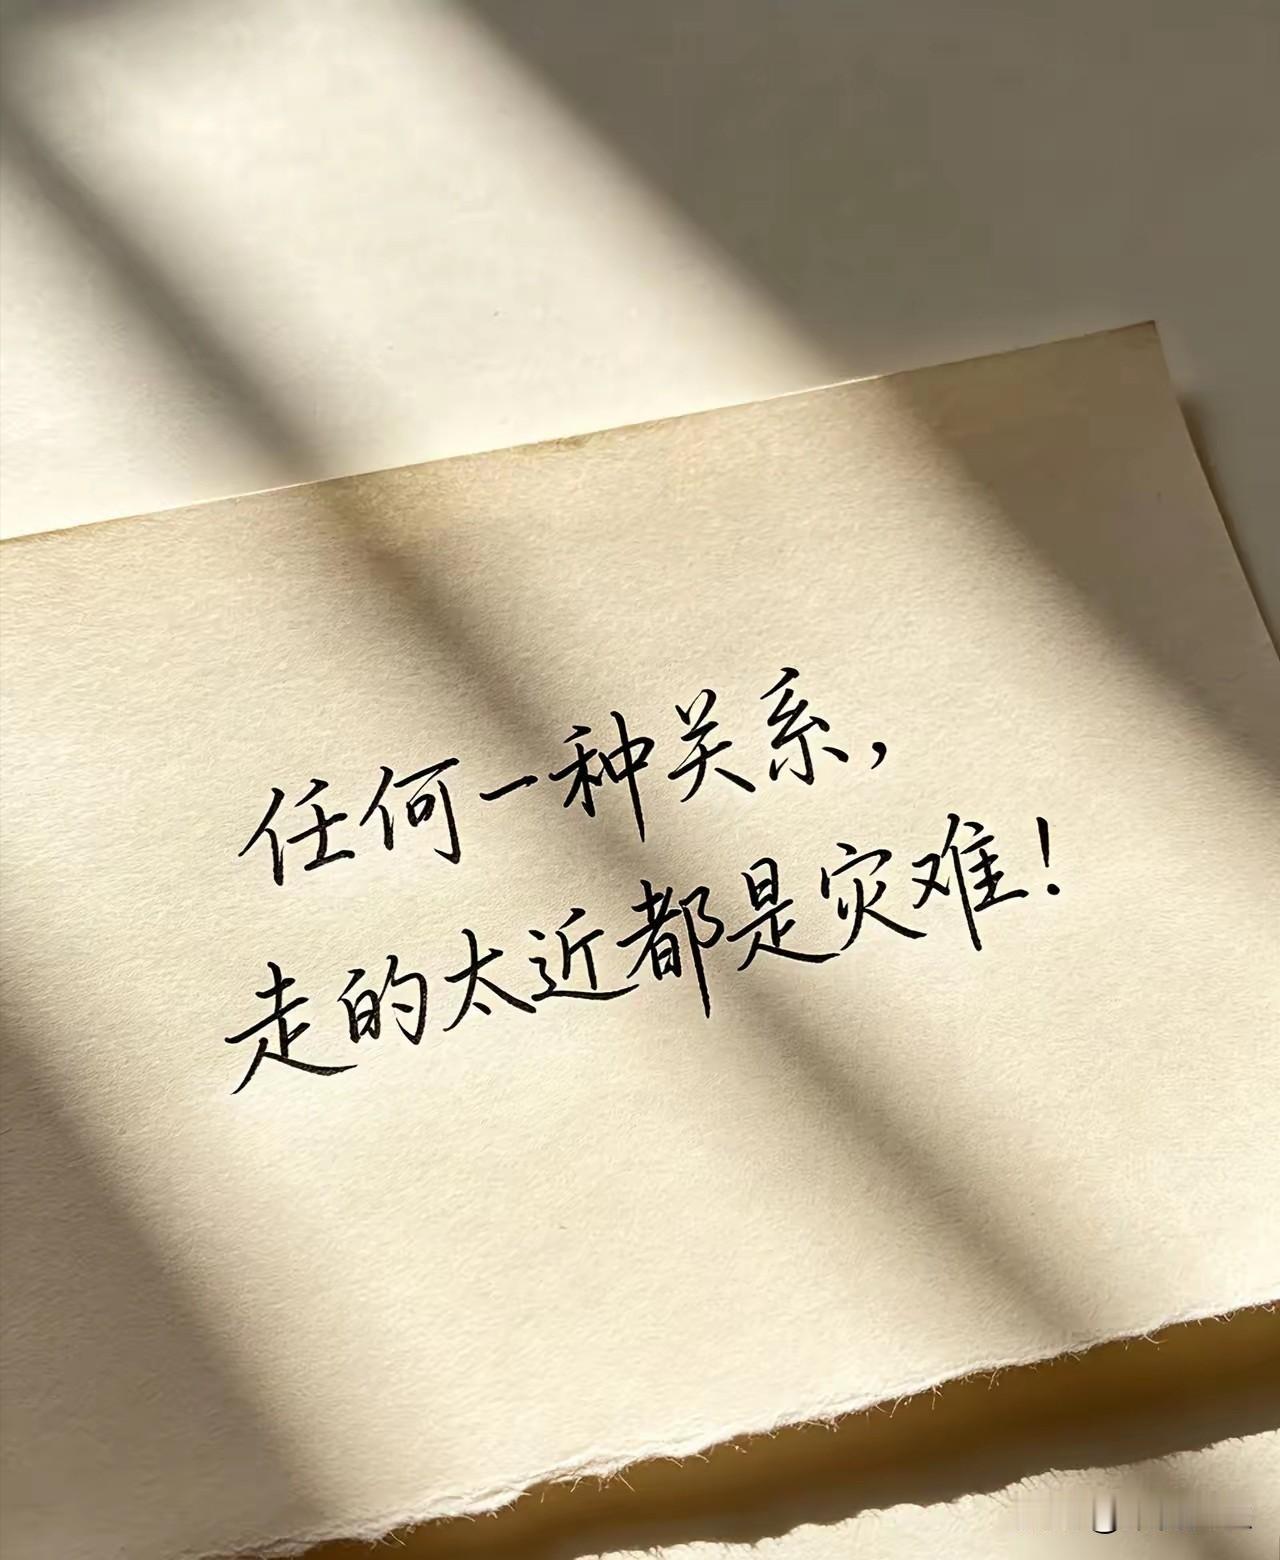 任何一种关系，
走的太近都是灾难！